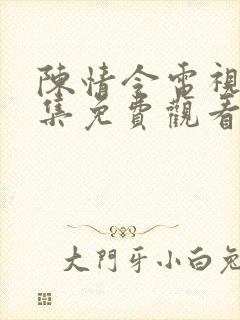 陳情令電視
集免費觀看
大門牙小白兔